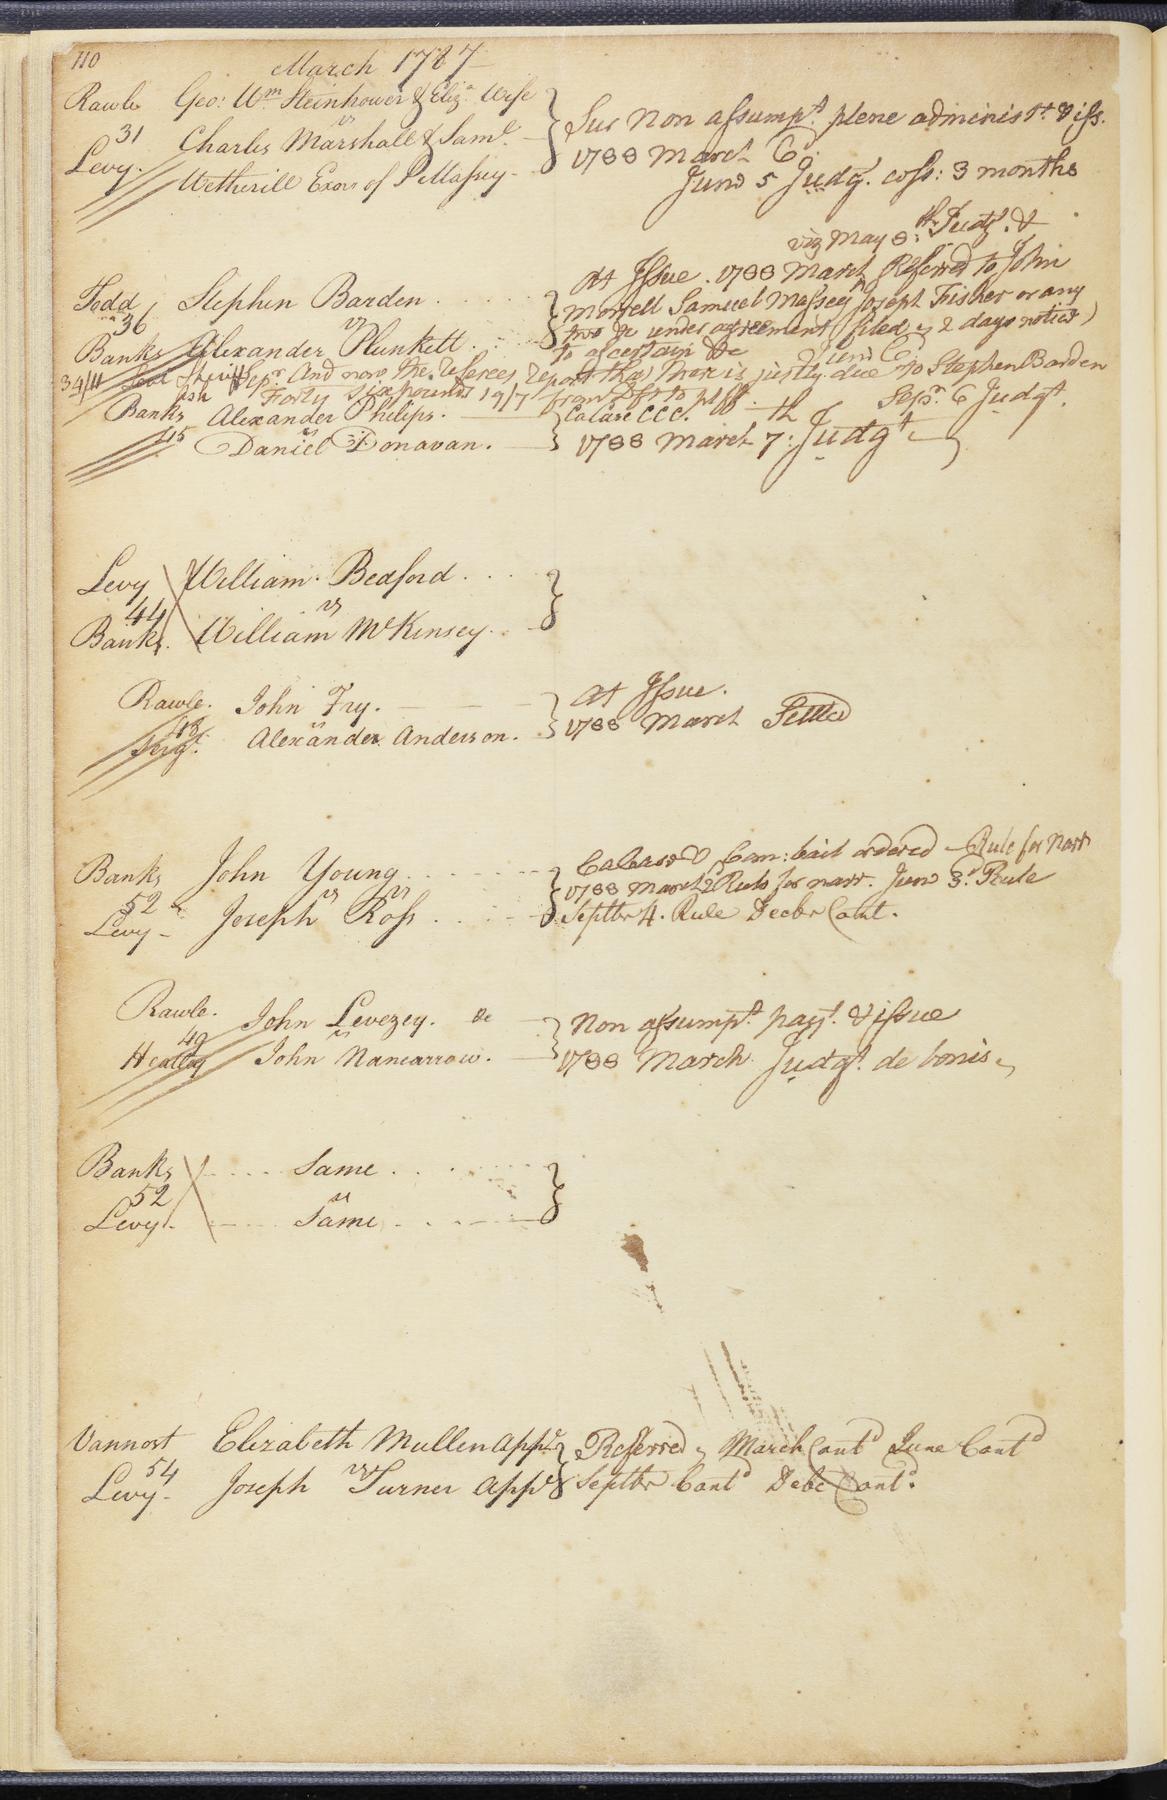 110
March 1787
Rawle Geo: Wm Steinhower & Eliza Wife
31 vs
Levy. Charles Marshall & Saml
Wetherill Exors of P Massey
Sur Non assumpt plene administ & iss.
1788 March C
June 5 Judgt. coss: 3 months
viz May 8: Judgt. &
Todd Stephen Barden
36 vs
Banks Alexander Plunkett
At Issue. 1788 March Referred to John
Morrell Samuel Massey Joseph Fisher or any
two &c under agreement filed 2 days notice)
to ascertain &c June C
34/11 Sepr And now the referees report that there is justly due to Stephen Barden
Forty six pounds 19/7 from Dft to pltff. Sepr 6 Judgt.
Banks Alexander Philips.
45 vs
Daniel Donavan.
Ca Case CCC.
1788 March 7th: Judgt
Levy William Bedford
44 vs
Banks. William McKinsey.
Rawle. John Fry.
48 vs
Sergt. Alexander Anderson.
At Issue.
1788 March Settled
Banks John Young
52 vs vs
Levy Joseph Ross
Ca Case & Com: bail ordered Rule for Narr
1788 March 2 Rule for narr. June 3d Rule
Septbr 4. Rule Decbr Cont.
Rawle. John Levezey. &c
49 vs
Heatley John Nancarrow.
Non assumpt. payt. & issue
1788 March Judgt. de bonis
Banks Same
52 vs
Levy. Same
Vannost Elizabeth Mullen Appt
54 vs
Levy Joseph Turner Appe
Referred March Contd June Contd
Septbr Contd Debr Contd.